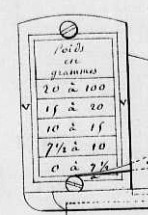 Poids
en
grammes
20 à 100
15 à 20
10 à 15
7½ à 10
0 à 7½